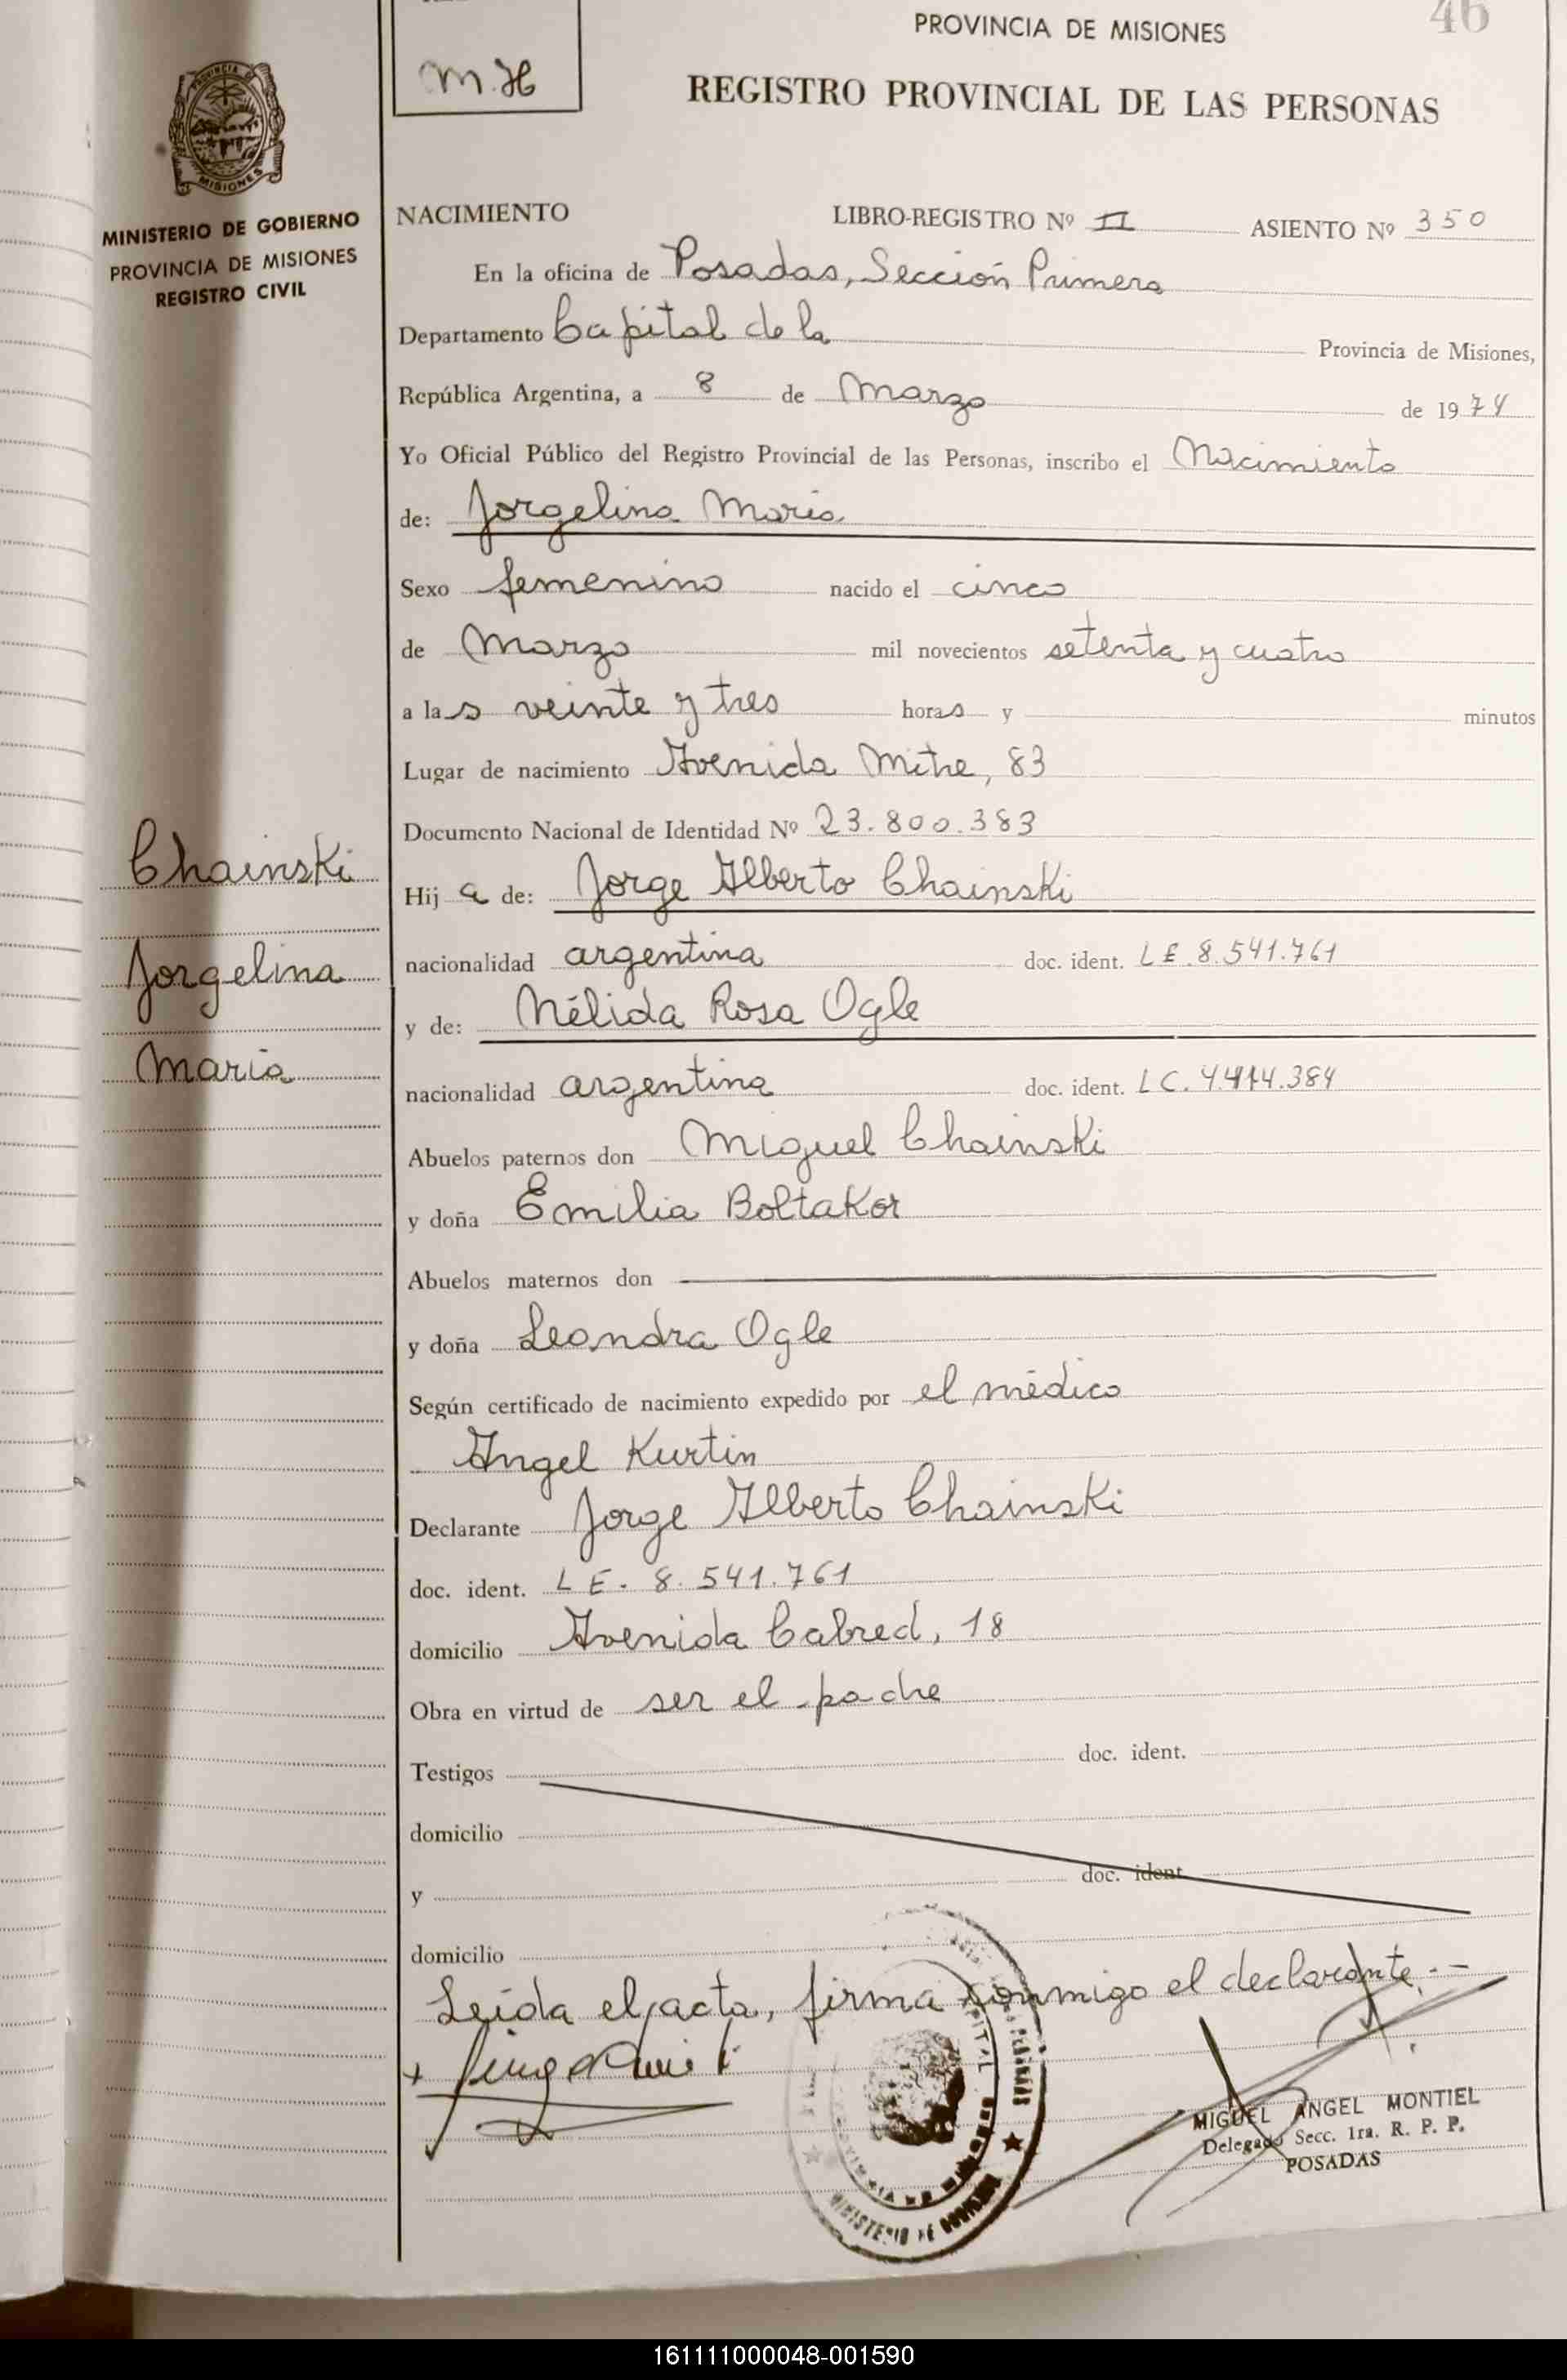 PROVINCIA DE MISIONES
46
M.H
REGISTRO PROVINCIAL DE LAS PERSONAS
MISIONES
MINISTERIO DE GOBIERNO
PROVINCIA DE MISIONES
REGISTRO CIVIL
NACIMIENTO LIBRO-REGISTRO Nº II ASIENTO Nº 350
En la oficina de Posadas, Sección Primera
Departamento Capital de la Provincia de Misiones,
República Argentina, a 8 de Marzo de 1974
Yo Oficial Público del Registro Provincial de las Personas, inscribo el Nacimiento
de: Jorgelina María
Sexo femenino nacido el cinco
de Marzo mil novecientos setenta y cuatro
a las veinte y tres horas y minutos
Lugar de nacimiento Avenida Mitre, 83
Documento Nacional de Identidad Nº 23.800.383
Chainski
Hija de: Jorge Alberto Chainski
Jorgelina
nacionalidad argentina doc. ident. LE.8.541.761
y de: Nélida Rosa Ogle
María
nacionalidad argentina doc. ident. LC.4.414.384
Abuelos paternos don Miguel Chainski
y doña Emilia Boltakor
Abuelos maternos don
y doña Leandra Ogle
Según certificado de nacimiento expedido por el médico
Angel Kurtin
Declarante Jorge Alberto Chainski
doc. ident. LE. 8.541.761
domicilio Avenida Cabred, 18
Obra en virtud de ser el padre
Testigos doc. ident.
domicilio
y doc. ident.
domicilio
Leída el acta, firma conmigo el declarante.--
MIGUEL ANGEL MONTIEL
Delegado Secc. 1ra. R. P. P.
POSADAS
MINISTERIO DE GOBIERNO
161111000048-001590